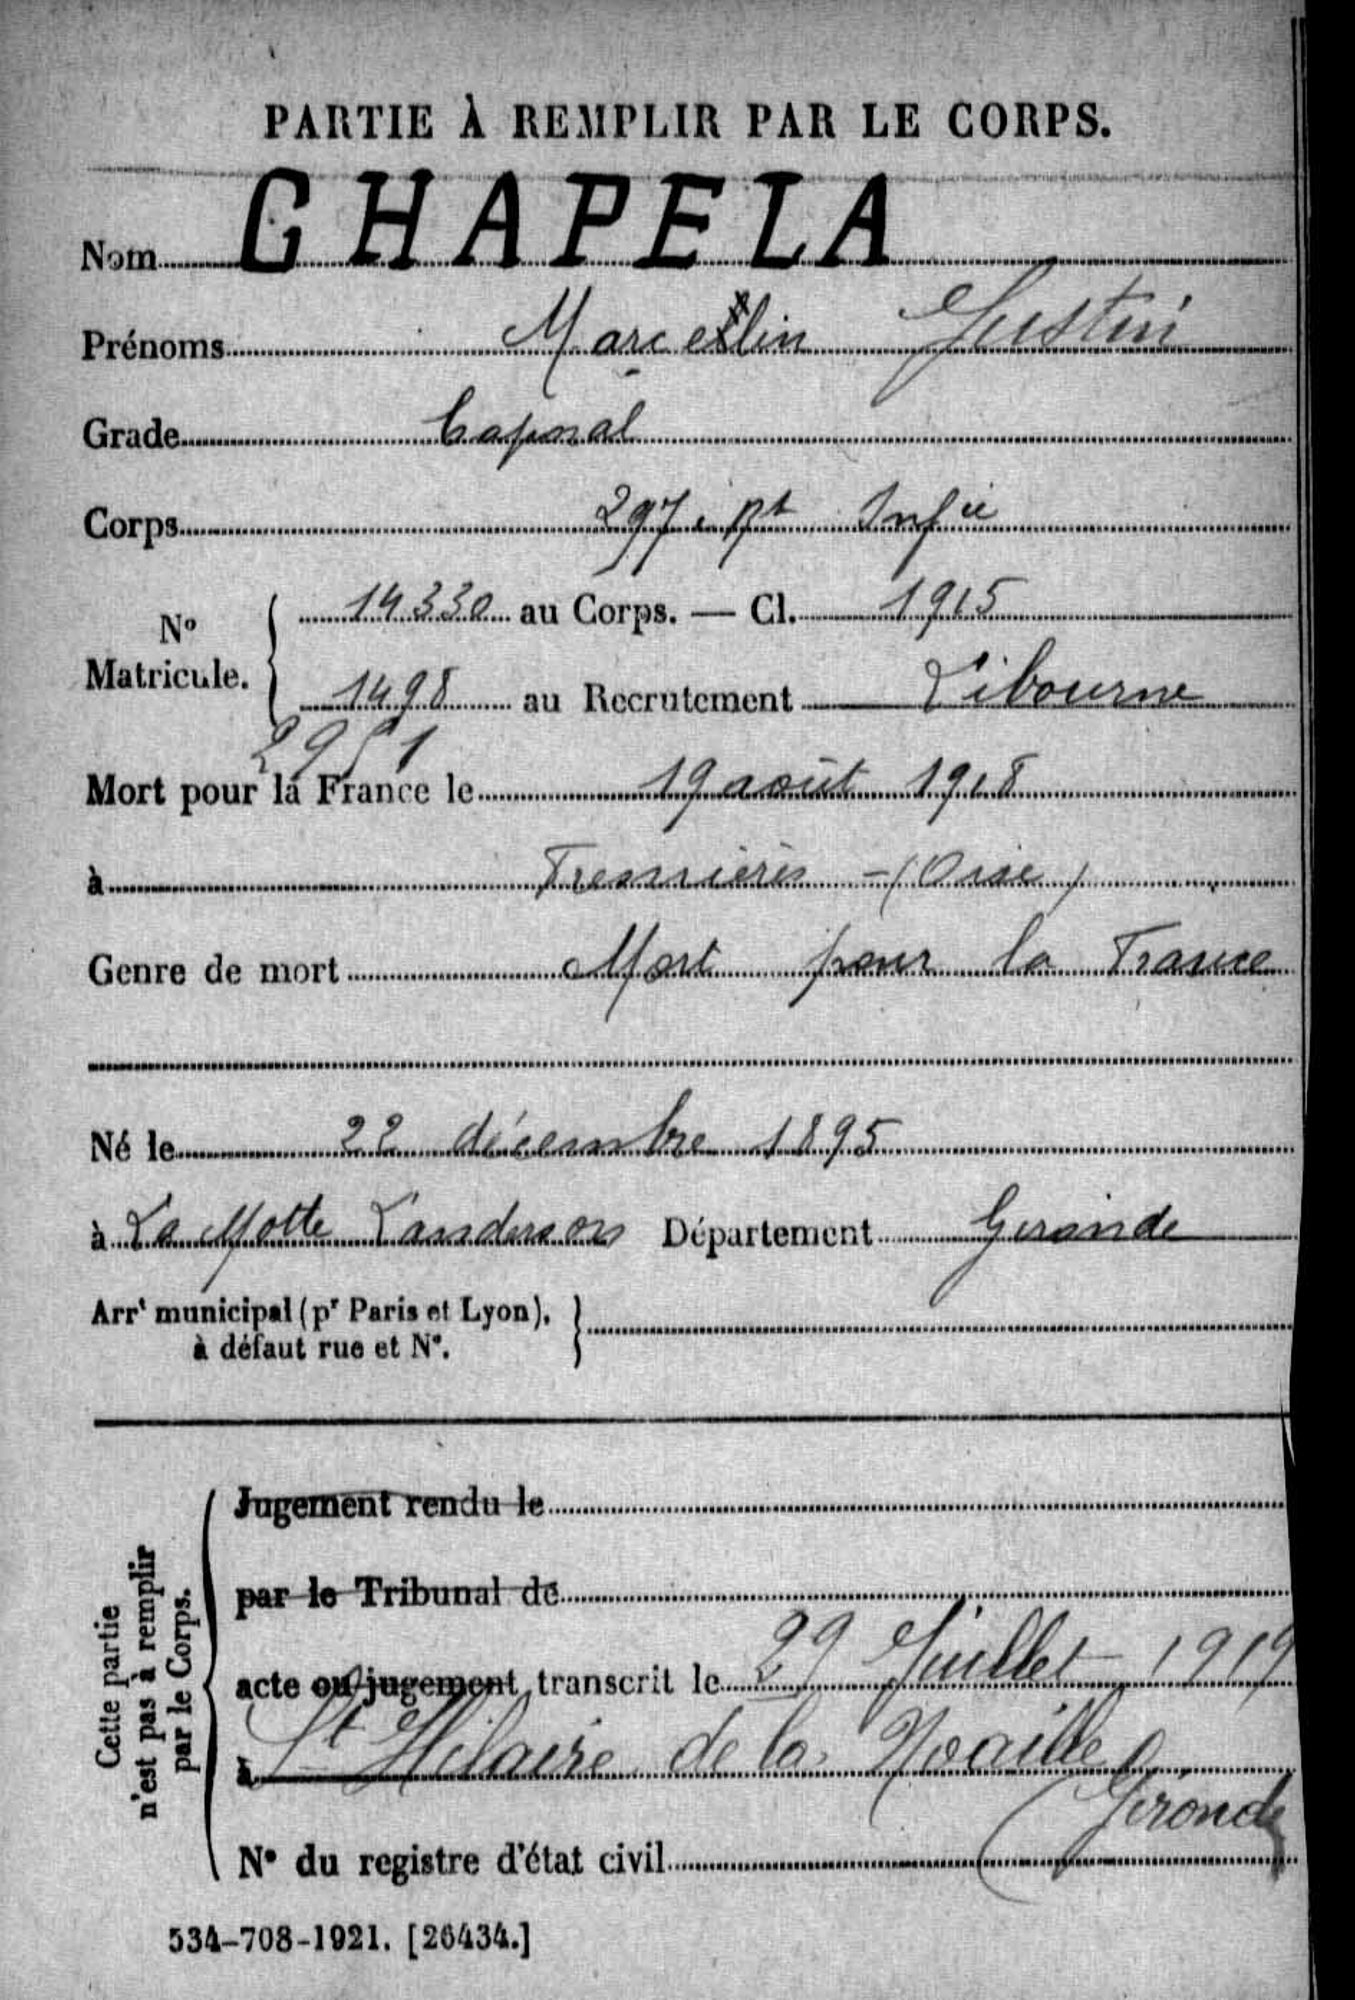 PARTIE À REMPLIR PAR LE CORPS.
Nom CHAPELA
Prénoms Marcelin Justin
Grade Caporal
Corps 297e Rt Infie
N° Matricule. 14330 au Corps. — Cl. 1915
1498 au Recrutement Libourne
2951
Mort pour la France le 19 août 1918
à (Oise)
Genre de mort Mort pour la France
Né le 22 décembre 1895
à La Motte Landerron Département Gironde
Arrt municipal (pr Paris et Lyon),
à défaut rue et N°.
Cette partie
n'est pas à remplir
par le Corps.
Jugement rendu le
par le Tribunal de
acte ou jugement transcrit le 29 Juillet 1919
à St Hilaire de la Noaille
(Gironde
N° du registre d'état civil
534-708-1921. [26434.]